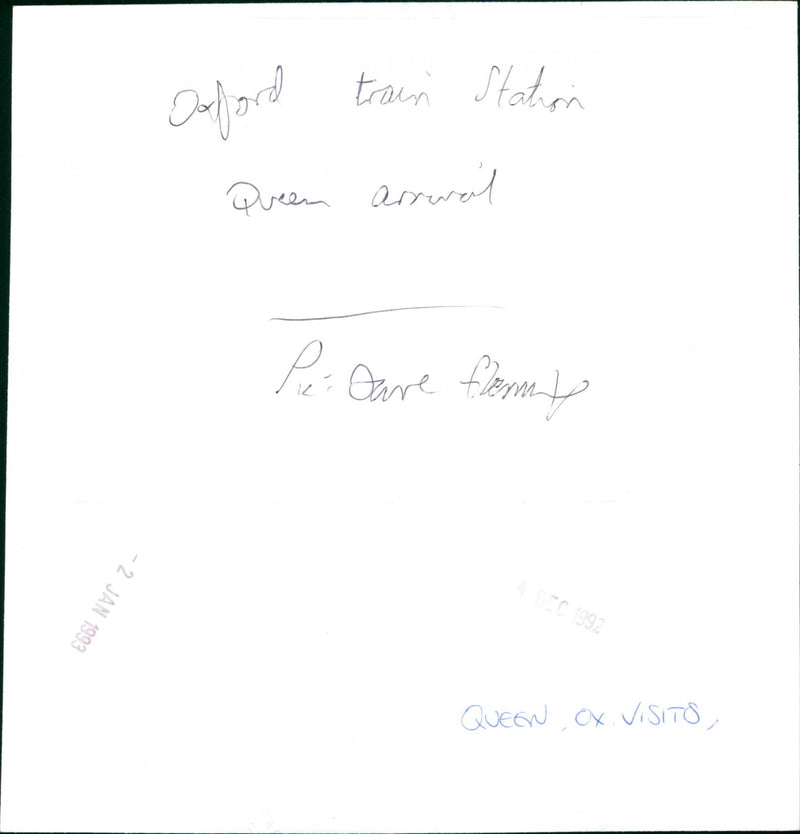 Oxford train Station
Queen arrival
Pic: Dave Fleming
- 2 JAN 1993
4 DEC 1992
QUEEN, OX. VISITS,